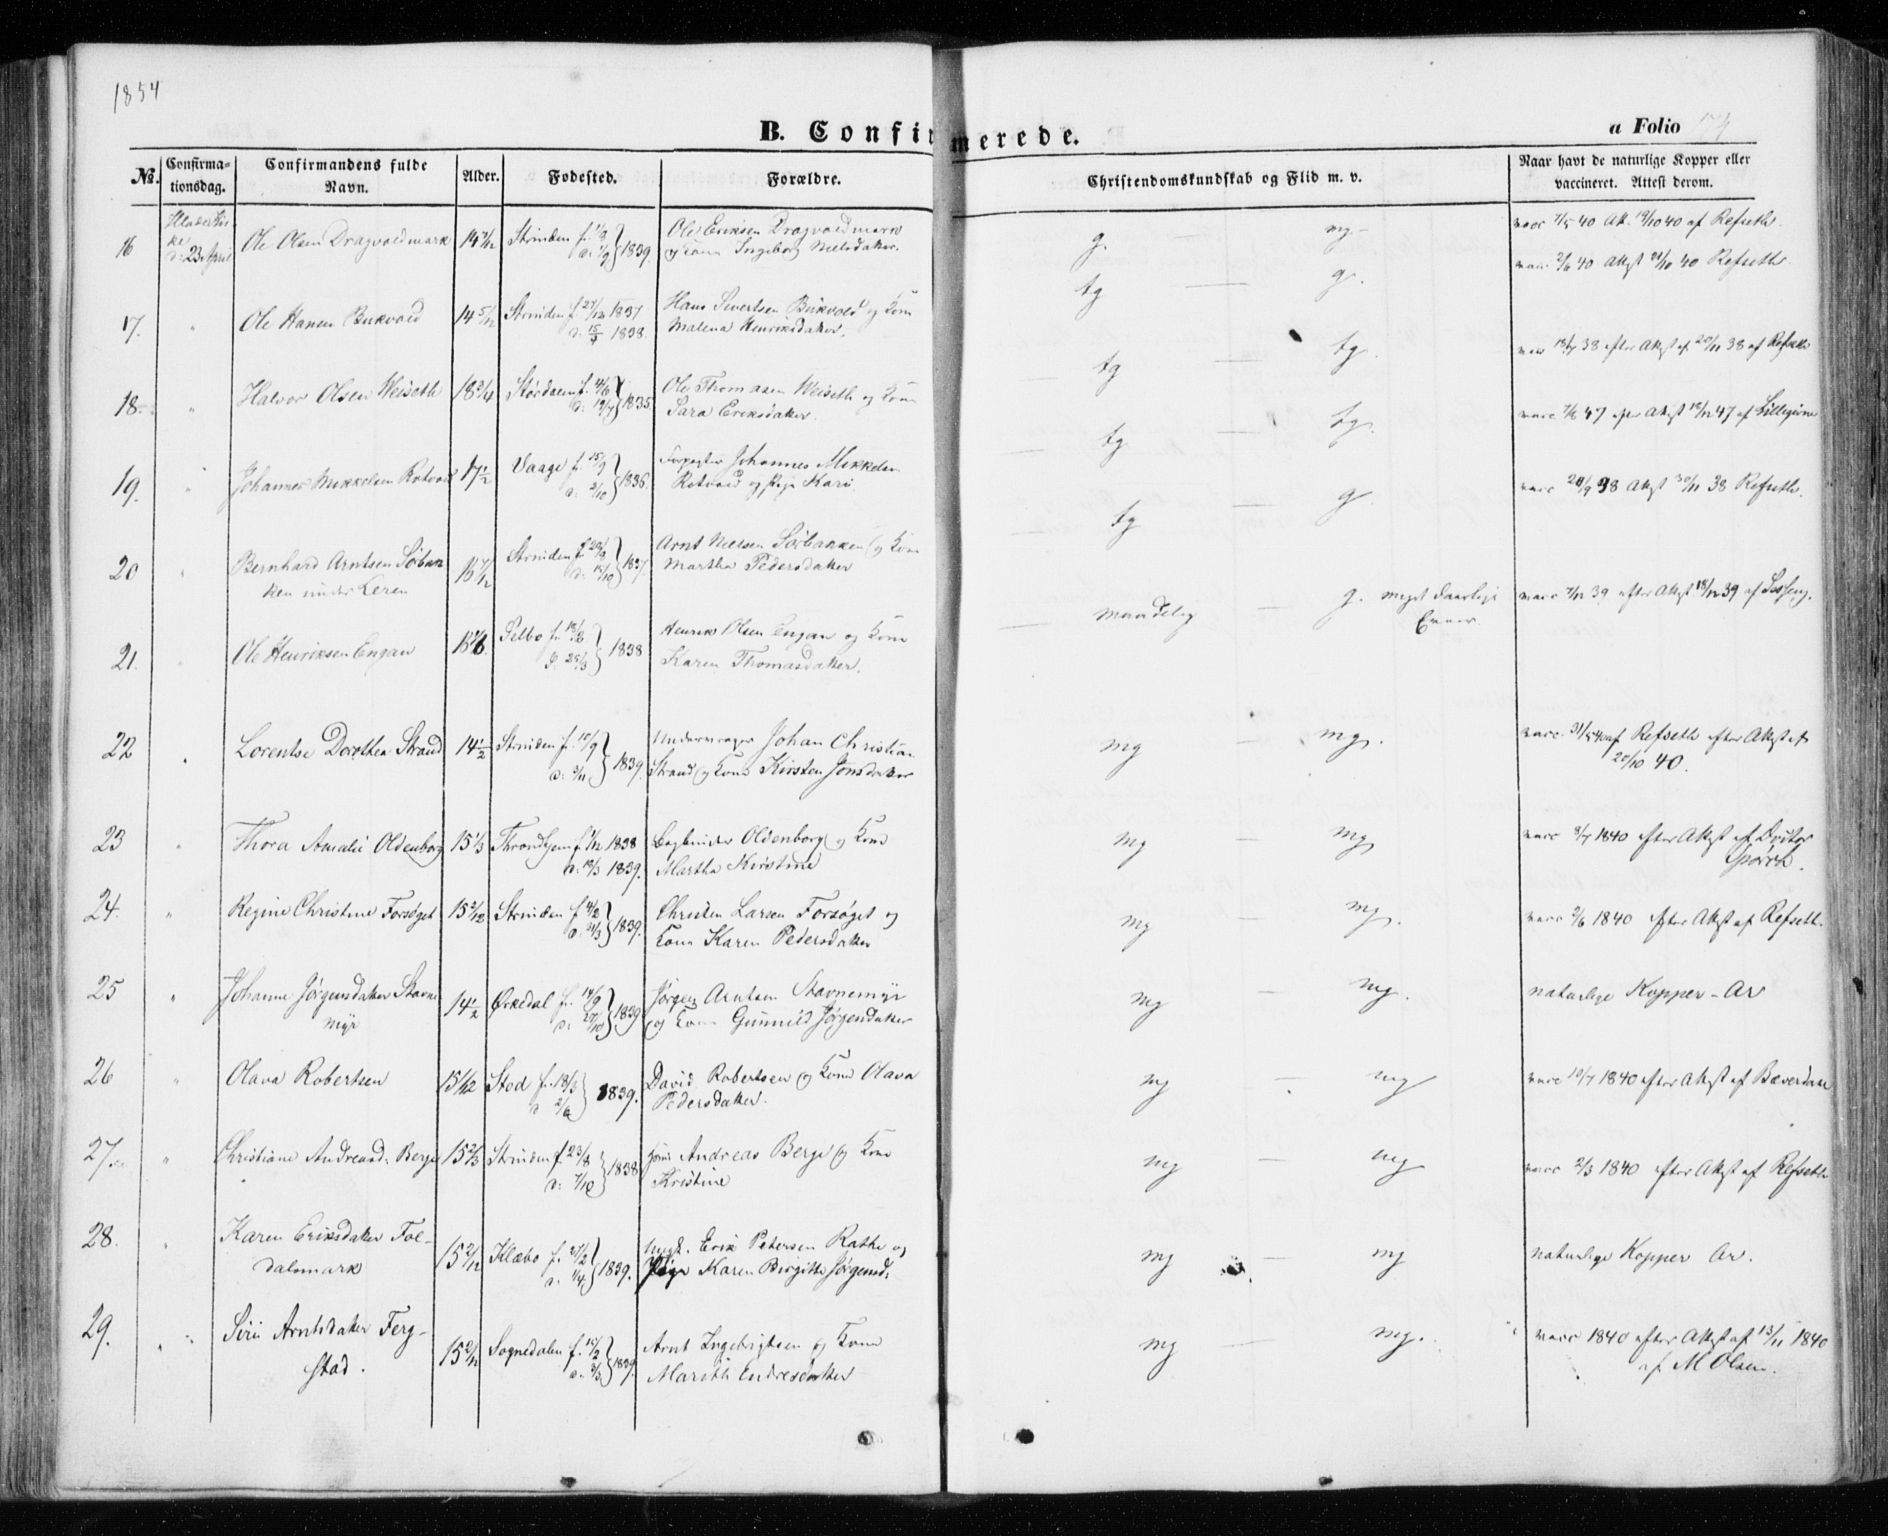 1854
B. Confirmerede.
a Folio
No.
Confirma-
tionsdag.
Confirmandens fulde
Navn.
Alder.
Fødested.
Forældre.
Christendomskundskab og Flid m. v.
Naar havt de naturlige Kopper eller
vaccineret. Attest derom.
16
23 April
Ole Olsen Dragvoldmark
14 7/12
Strinden f. 1/8
d: 1/9 } 1839.
Ole Eriksen Dragvoldmark
og Kone Ingeborg
g. — mg.
vacc 7/5 40 Att. 19/10 40 af Refseth.
17.
Ole Hansen Bukvold
14 5/12
Strinden f. 27/12 1837
1838.
Hans Sivertsen Bukvold og Kone
Malena Henriksdatter.
tg — g.
vacc 2/6 40 Attest 21/10 40 Refseth.
18
Halvor Olsen Weiseth
18 3/4
Størdalen f. 4/6
d: 19/7 } 1835
Ole Thomasen Weiseth og Kone
Sara Eriksdatter.
tg — tg.
38 efter Attest af 20/11 38 af Refseth
19.
Johannes Mikkelsen Rotvold
17 1/2
Vaage f. 15/9
d: 2/10 } 1836.
Forpagter Johannes Mikkelsen
Rotvold og Pige Kari.
tg — tg.
vacc 7/8 47 efter Attest 18/12 47 af
20
Bernhard Arntsen Sørbak
ken under Leren
16 7/12
Strinden f. 20/9
d: 15/10 } 1837
Arnt Nielsen Sørbakken og Kone
Martha Pedersdatter
tg — g.
vacc 20/9 38 Attest 30/11 38 Refseth.
21.
Ole Henriksen Engan
Selbo f. 18/2
25/3 } 1838
Henrik Olsen Engan og Kone
Karen Thomasdatter.
maadelig — g. meget daarlige
Evner.
vacc 7/12 39 efter Attest 18/12 39 af
22
Lorentse Dorothea Strand
14 1/2
Strinden f. 10/9
d: 3/11 } 1839.
Johan Christian
Strand og Kone Kirsten Jonsdatter
mg — mg.
vacc. 31/5 40 af Refseth efter Attest af
20/10 40.
23
Thora Amalie Oldenborg
15 1/3
Throndhjem f. 1/12 1838
d. 18/3 1839.
Bogbinder Oldenborg og Kone
Martha Kirstine
mg — mg
vacc 8/7 1840 efter Attest af Doctor
24.
Regine Christine Forsøget
15 2/12
Strinden f. 4/2
d. 31/3 } 1839.
Christen Larsen Forsøget og
Kone Karen Pedersdatter
mg — mg.
vacc 2/6 1840 efter Attest af Refseth.
25
Johanne Jørgensdatter Stavne
myr
14 1/2
Ørkedal f. 14/9
d: 27/10 } 1839
Jørgen Arntsen Stavnemyr
og Kone Gunnild Jørgendatter
mg — mg.
naturlige Kopper - Ar
26
Olava Robertsen
15 1/12
Stod f. 18/3
d 2/6 } 1839.
David Robertsen og Kone Olava
Pedersdatter.
mg — mg
vacc 10/7 1840 efter Attest af Bæverdan
27.
Christiane Andreasd: Berge
15 2/3
Strinden f. 23/8
d: 7/10 } 1838
Andreas Berge og Kone
Kristine
mg — mg
vacc 2/3 1840 efter Attest af Refseth
28.
Karen Eriksdatter Fol-
dalsmark
15 2/12
Klæbo f. 27/2
d: 1/4 } 1839.
Erik Petersen Rathe og
Pige Karen Birgitte Jørgensd:
mg — mg
naturlige Kopper Ar.
29.
Siri Arntsdatter Ferg-
stad.
15 2/12
Sognedalen f. 15/2
d. 3/3 } 1839.
Arnt Ingebrigtsen og Kone
Marith Endresdatter
mg — mg.
vacc 1840 efter Attest af 13/11 1840
af M Olsen.